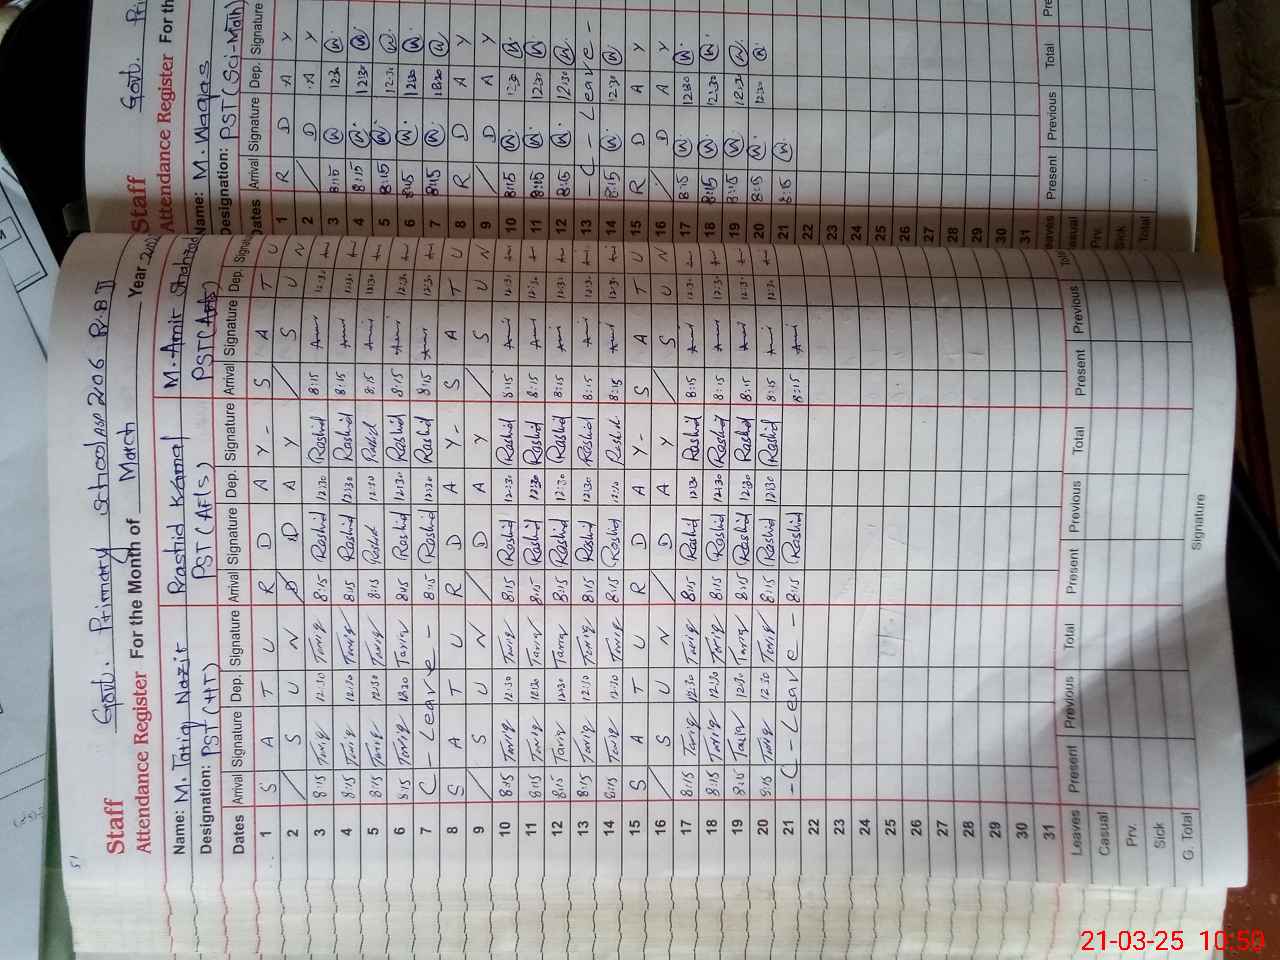 51
Staff Govt. Primary School
Attendance Register For the Month of March Year
Name: M. Tariq Nazir Rashid Kamal M. Amir Shahzad
Designation: PST (HT) PST (Arts) PST (Arts)
Dates Arrival Signature Dep. Signature Arrival Signature Dep. Signature Arrival Signature Dep. Signat
1 S A T U R D A Y - S A T U
2 / S U N D A Y / S U N
3 8:15 Tariq 12:30 Tariq 8:15 Rashid 12:30 Rashid 8:15 Amir 12:30 Amir
4 8:15 Tariq 12:30 Tariq 8:15 Rashid 12:30 Rashid 8:15 Amir 12:30 Amir
5 8:15 Tariq 12:30 Tariq 8:15 Rashid 12:30 Rashid 8:15 Amir 12:30 Amir
6 8:15 Tariq 12:30 Tariq 8:15 Rashid 12:30 Rashid 8:15 Amir 12:30 Amir
7 C - Leave - 8:15 Rashid 12:30 Rashid 8:15 Amir 12:30 Amir
8 S A T U R D A Y - S A T U
9 / S U N / D A Y / S U N
10 8:15 Tariq 12:30 Tariq 8:15 Rashid 12:30 Rashid 8:15 Amir 12:30 Amir
11 8:15 Tariq 12:30 Tariq 8:15 Rashid 12:30 Rashid 8:15 Amir 12:30 Amir
12 8:15 Tariq 12:30 Tariq 8:15 Rashid 12:30 Rashid 8:15 Amir 12:30 Amir
13 8:15 Tariq 12:30 Tariq 8:15 Rashid 12:30 Rashid 8:15 Amir 12:30 Amir
14 8:15 Tariq 12:30 Tariq 8:15 Rashid 12:30 Rashid 8:15 Amir 12:30 Amir
15 S A T U R D A Y - S A T U
16 / S U N / D A Y / S U N
17 8:15 Tariq 12:30 Tariq 8:15 Rashid 12:30 Rashid 8:15 Amir 12:30 Amir
18 8:15 Tariq 12:30 Tariq 8:15 Rashid 12:30 Rashid 8:15 Amir 12:30 Amir
19 8:15 Tariq 12:30 Tariq 8:15 Rashid 12:30 Rashid 8:15 Amir 12:30 Amir
20 8:15 Tariq 12:30 Tariq 8:15 Rashid 12:30 Rashid 8:15 Amir 12:30 Amir
21 - C - Leave - 8:15 Rashid 8:15 Amir
22
23
24
25
26
27
28
29
30
31
Leaves Present Previous Total Present Previous Total Present Previous Total
Casual
Prv.
Sick
G. Total
Signature
Staff Govt. Pri
Attendance Register For th
Name: M. Waqas
Designation: PST (Sci-Math)
Dates Arrival Signature Dep. Signature
1 R D A Y
2 / D A Y
3 8:15 W 12:30 W
4 8:15 W 12:30 W
5 8:15 W 12:30 W
6 8:15 W 12:30 W
7 8:15 W 12:30 W
8 R D A Y
9 / D A Y
10 8:15 W 12:30 W
11 8:15 W 12:30 W
12 8:15 W 12:30 W
13 - C - Leave -
14 8:15 W 12:30 W
15 R D A Y
16 / D A Y
17 8:15 W 12:30 W
18 8:15 W 12:30 W
19 8:15 W 12:30 W
20 8:15 W 12:30 W
21 8:15 W
22
23
24
25
26
27
28
29
30
31
Leaves Present Previous Total Pre
Casual
Prv.
Sick
Total
21-03-25 10:50